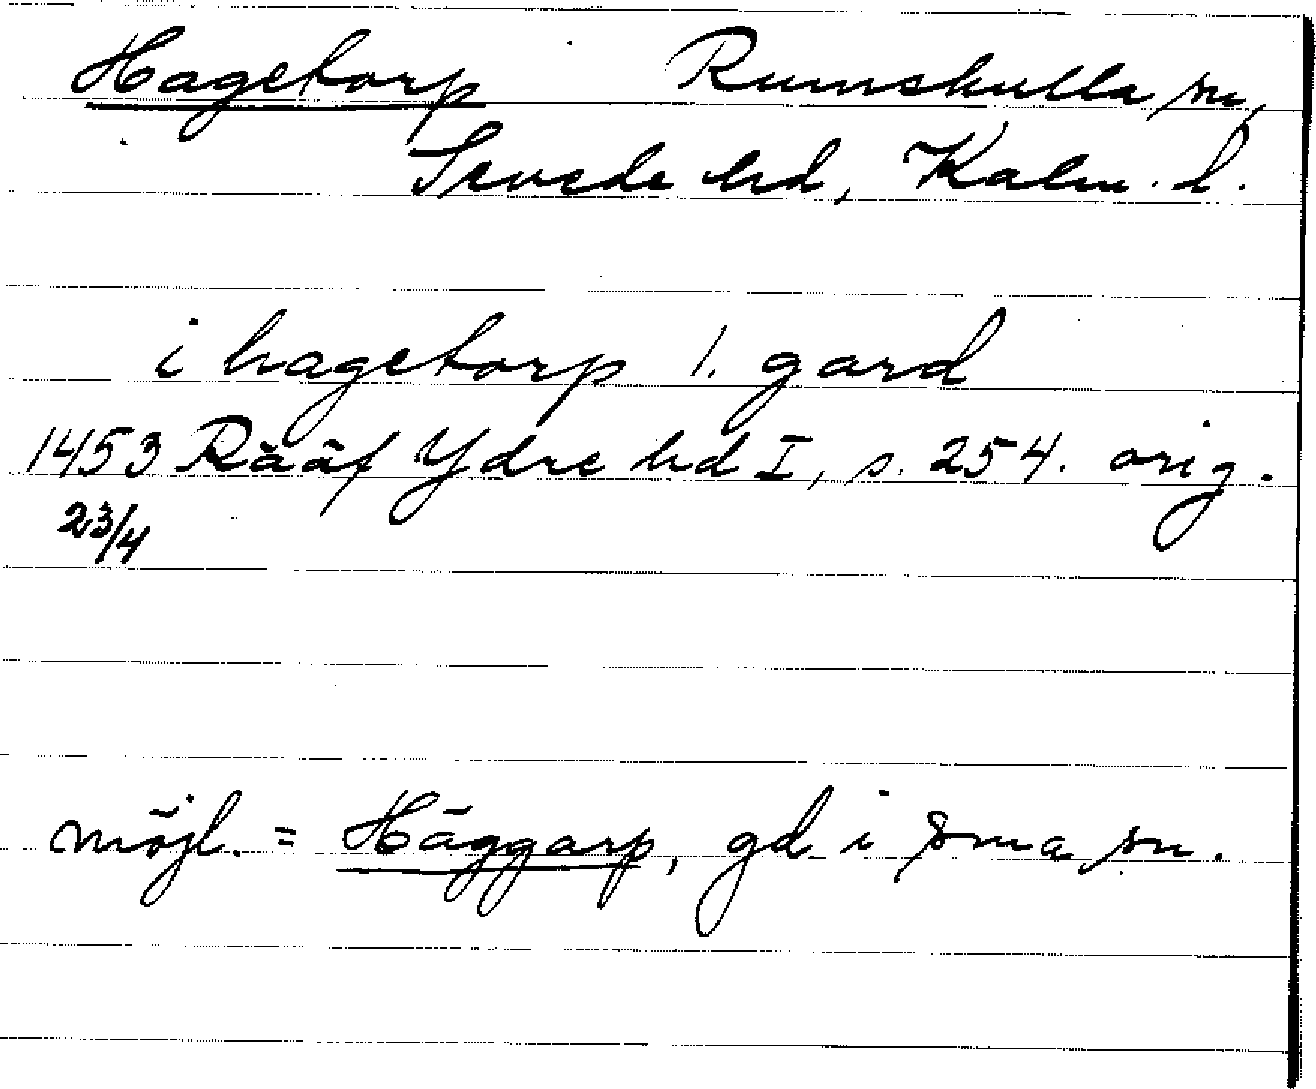 Hagetorp Rumskulla sn,
Sevede hd, Kalm. l.
i hagetorp 1. gard
1453 Rääf Ydre hd I, s. 254. orig.
23/4
möjl. = Häggarp, gd i sma sn.